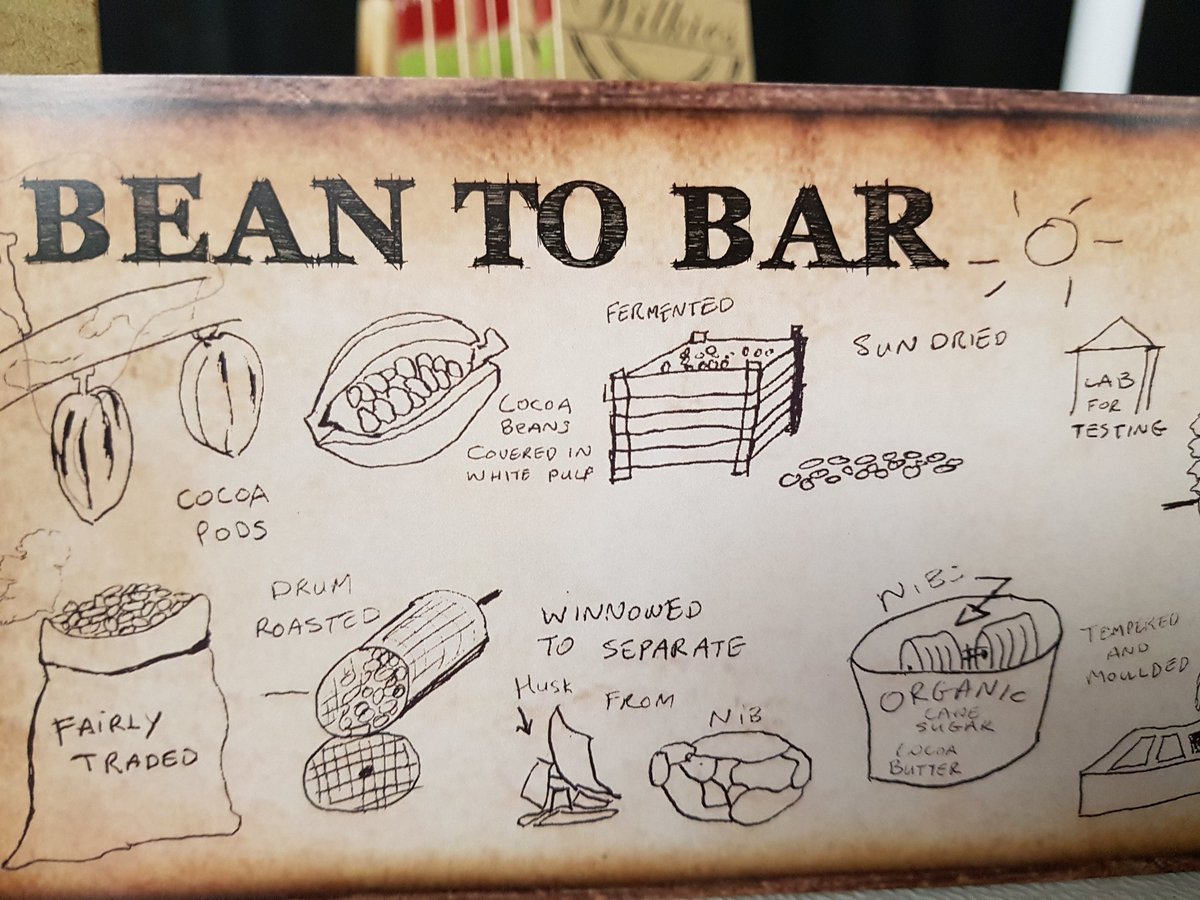 Wilkies
BEAN TO BAR
COCOA
PODS
COCOA
BEANS
COVERED IN
WHITE PULP
FERMENTED
SUN DRIED
LAB
FOR
TESTING
FAIRLY
TRADED
DRUM
ROASTED
WINNOWED
TO SEPARATE
Husk
FROM
NIB
NIBS
ORGANIC
CANE
SUGAR
COCOA
BUTTER
TEMPERED
AND
MOULLDED